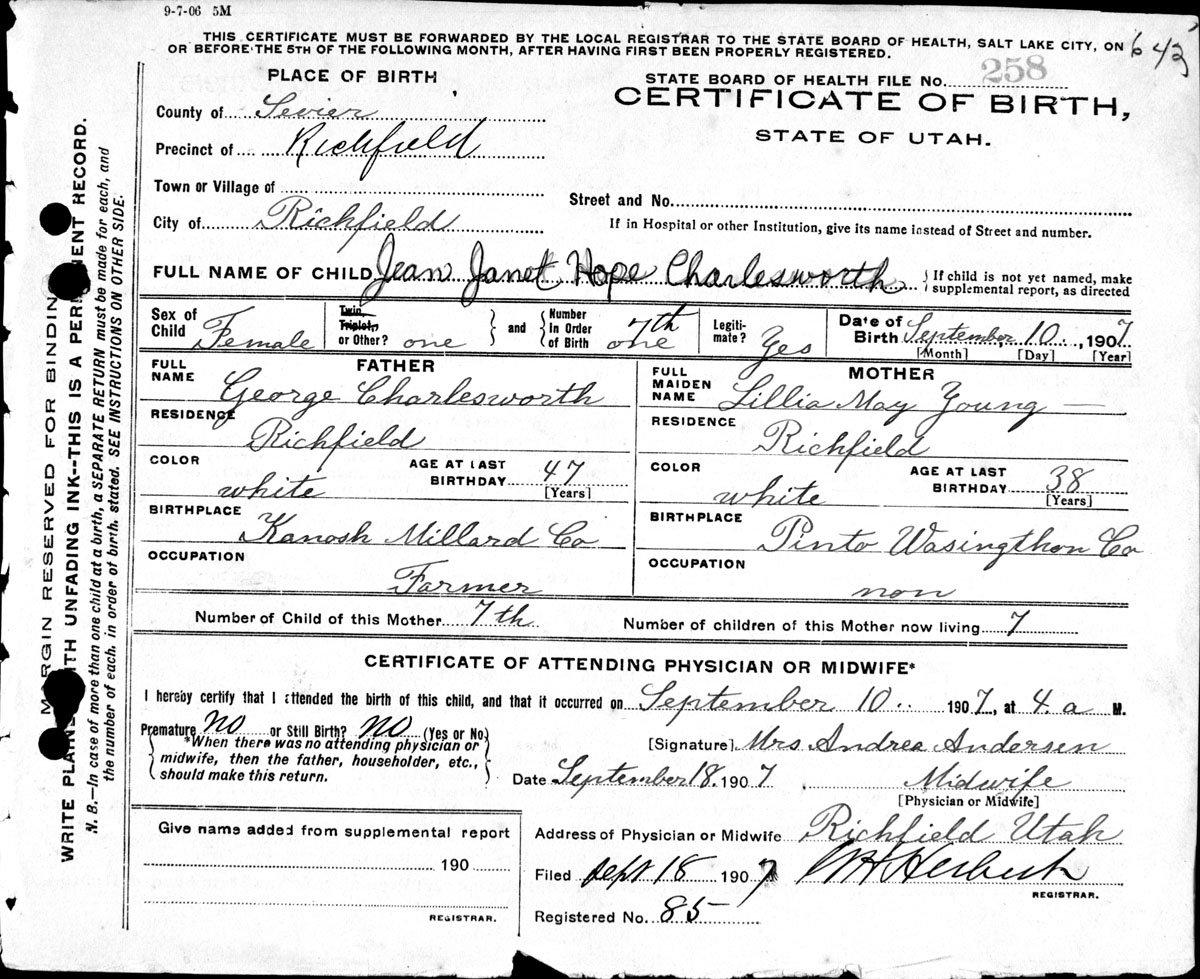 9-7-06 5M
THIS CERTIFICATE MUST BE FORWARDED BY THE LOCAL REGISTRAR TO THE STATE BOARD OF HEALTH, SALT LAKE CITY, ON
OR BEFORE THE 5TH OF THE FOLLOWING MONTH, AFTER HAVING FIRST BEEN PROPERLY REGISTERED.
643
PLACE OF BIRTH
STATE BOARD OF HEALTH FILE No. 258
CERTIFICATE OF BIRTH,
STATE OF UTAH.
County of Sevier
Precinct of Richfield
Town or Village of
Street and No.
City of Richfield
If in Hospital or other Institution, give its name instead of Street and number.
FULL NAME OF CHILD Jean Janet Hope Charlesworth
If child is not yet named, make
supplemental report, as directed
Sex of Child Female
Twin, Triplet, or Other? one
and
Number In Order of Birth 7th one
Legitimate? Yes
Date of Birth September 10 1907
[Month] [Day] [Year]
FATHER
FULL NAME George Charlesworth
RESIDENCE Richfield
COLOR white
AGE AT LAST BIRTHDAY 47
[Years]
BIRTHPLACE Kanosh Millard Co
OCCUPATION Farmer
MOTHER
FULL MAIDEN NAME Lillia May Young
RESIDENCE Richfield
COLOR white
AGE AT LAST BIRTHDAY 38
[Years]
BIRTHPLACE Pinto Wasingthon Co
OCCUPATION non
Number of Child of this Mother 7th
Number of children of this Mother now living 7
CERTIFICATE OF ATTENDING PHYSICIAN OR MIDWIFE*
I hereby certify that I attended the birth of this child, and that it occurred on September 10 1907, at 4. a M.
Premature No or Still Birth? No (Yes or No)
*When there was no attending physician or
midwife, then the father, householder, etc.,
should make this return.
[Signature] Mrs. Andrea Andersen
Date September 18 1907
Midwife
[Physician or Midwife]
Give name added from supplemental report
190
REGISTRAR.
Address of Physician or Midwife Richfield Utah
Filed Sept 18 1907
REGISTRAR.
Registered No. 85
MARGIN RESERVED FOR BINDING
WRITE PLAINLY WITH UNFADING INK--THIS IS A PERMANENT RECORD.
N. B.—In case of more than one child at a birth, a SEPARATE RETURN must be made for each, and
the number of each, in order of birth, stated. SEE INSTRUCTIONS ON OTHER SIDE.